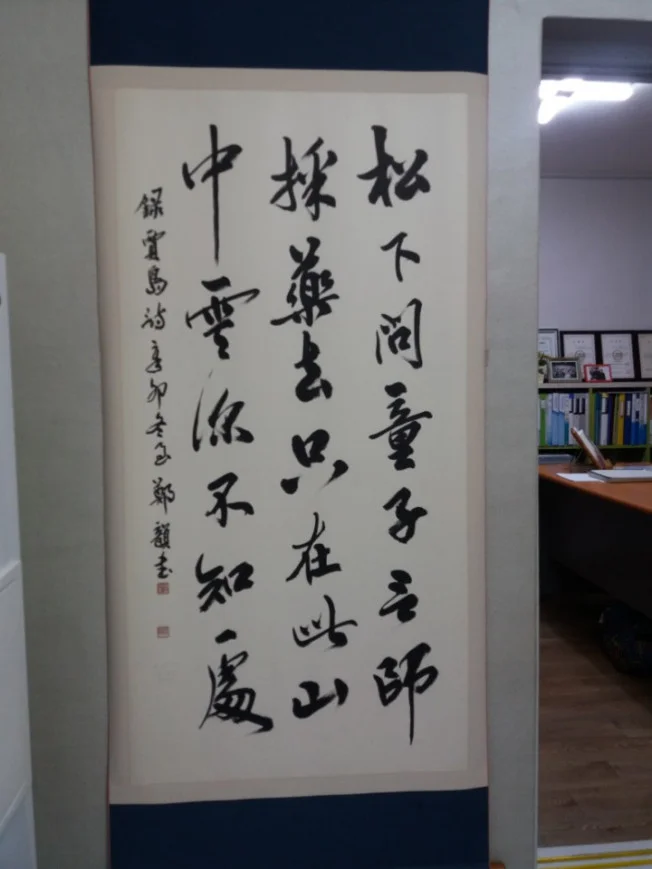 松下問童子言師
採藥去只在此山
中雲深不知處
錄賈島詩辛卯冬 鄭 書